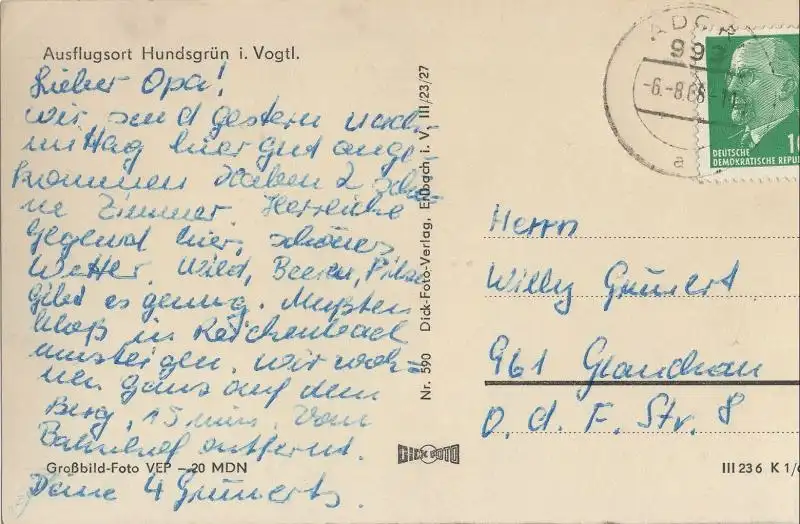 Ausflugsort Hundsgrün i. Vogtl.
Lieber Opa!
Wir sind gestern nach-
mittag hier gut ange-
kommen. Haben 2 schö-
ne Zimmer. Herrliche
Gegend hier, schönes
Wetter, Wild, Beeren, Pilze
gibt es genug. Mußten
bloß in Reichenbach
umsteigen. Wir woh-
nen ganz auf dem
Berg, 15 min. vom
Bahnhof entfernt.
Großbild-Foto VEP —20 MDN
Deine 4 Grünerts.
Nr. 590 Dick-Foto-Verlag, Erlbach i. V. III/23/27
DICK FOTO
ADORF
993
-6.-8.65-11
a
DEUTSCHE
DEMOKRATISCHE REPUB
10
Herrn
Willy Grünert
961 Glauchau
O. d. F. Str. 8
III 23 6 K 1/6